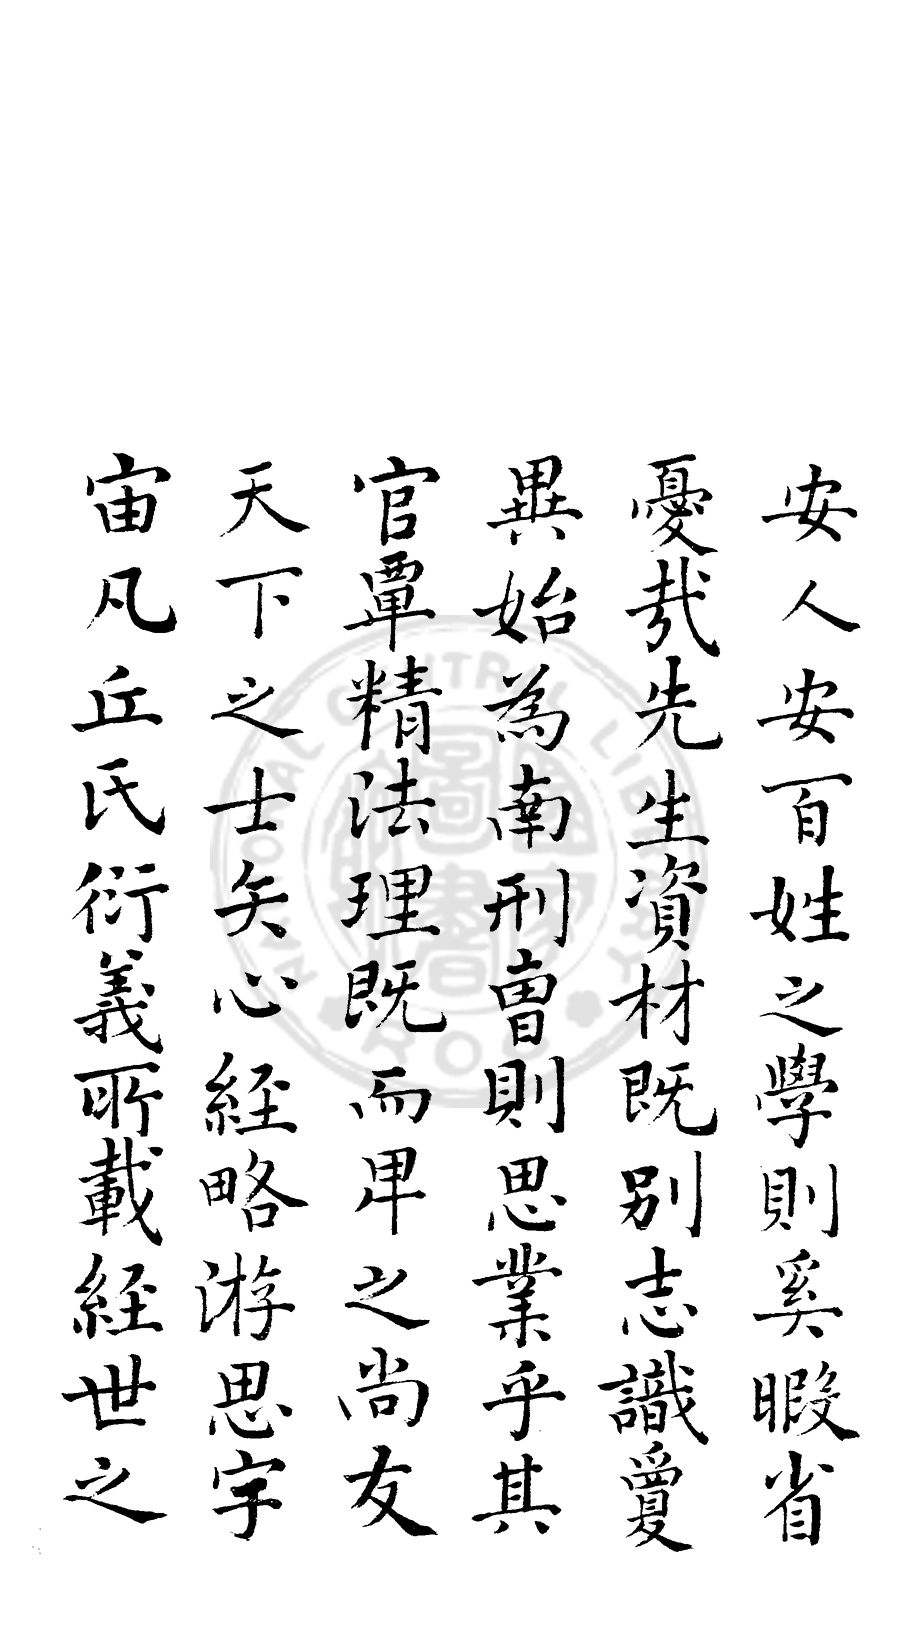 安人安百姓之學則奚暇省
憂哉先生資材既别志識敻
異始為南刑曺則思業乎其
官覃精法理既而卑之尚友
天下之士矣心経略游思宇
宙凡丘氏衍義所載経世之
NATIONAL CENTRAL LIBRARY
ROC